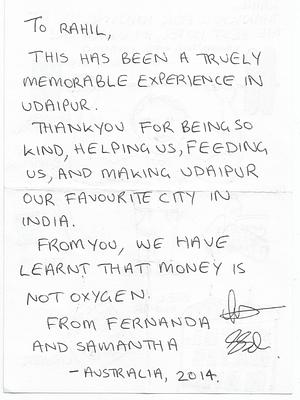 To RAHIL,
THIS HAS BEEN A TRUELY
MEMORABLE EXPERIENCE IN
UDAIPUR.
THANKYOU FOR BEING SO
KIND, HELPING US, FEEDING
US, AND MAKING UDAIPUR
OUR FAVOURITE CITY IN
INDIA.
FROM YOU, WE HAVE
LEARNT THAT MONEY IS
NOT OXYGEN.
FROM FERNANDA
AND SAMANTHA
- AUSTRALIA, 2014.